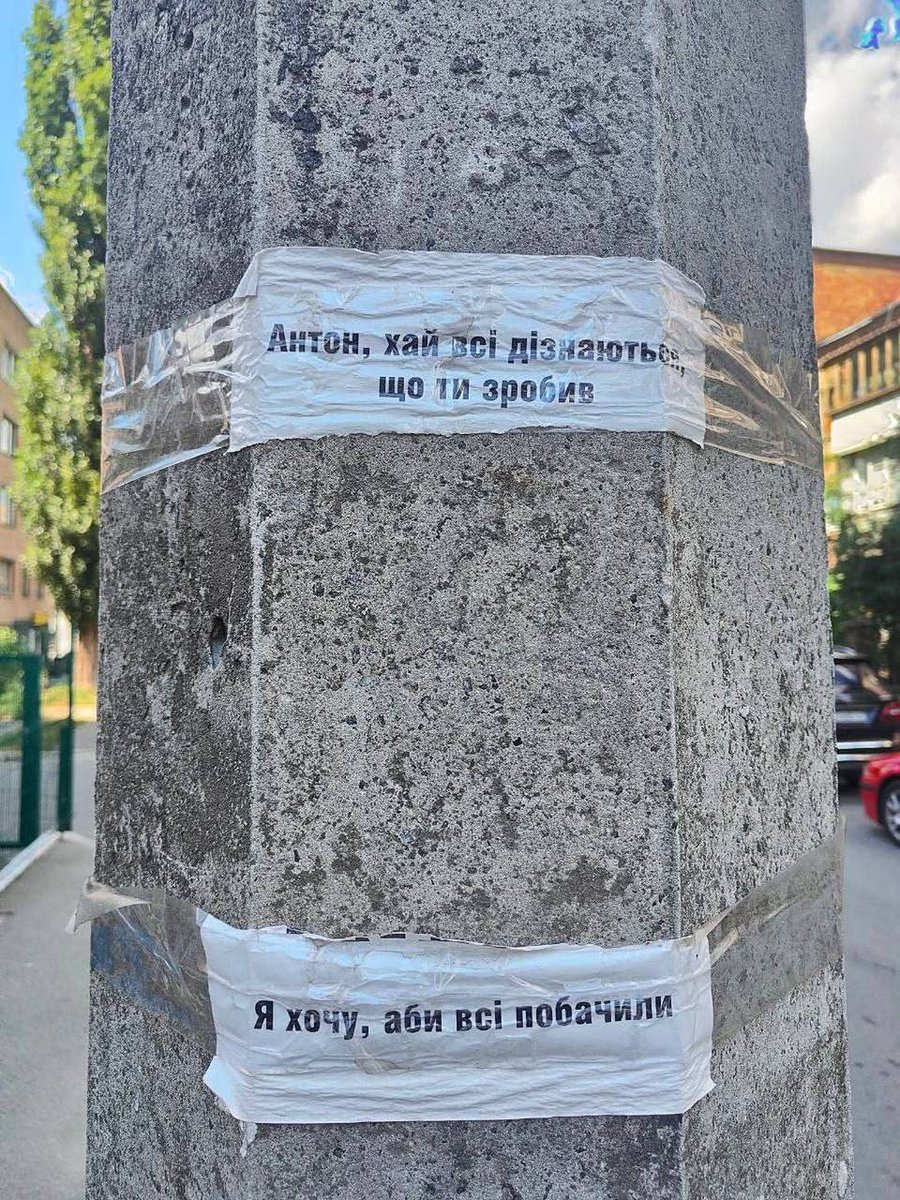 Антон, хай всі дізнаються,
що ти зробив
Я хочу, аби всі побачили